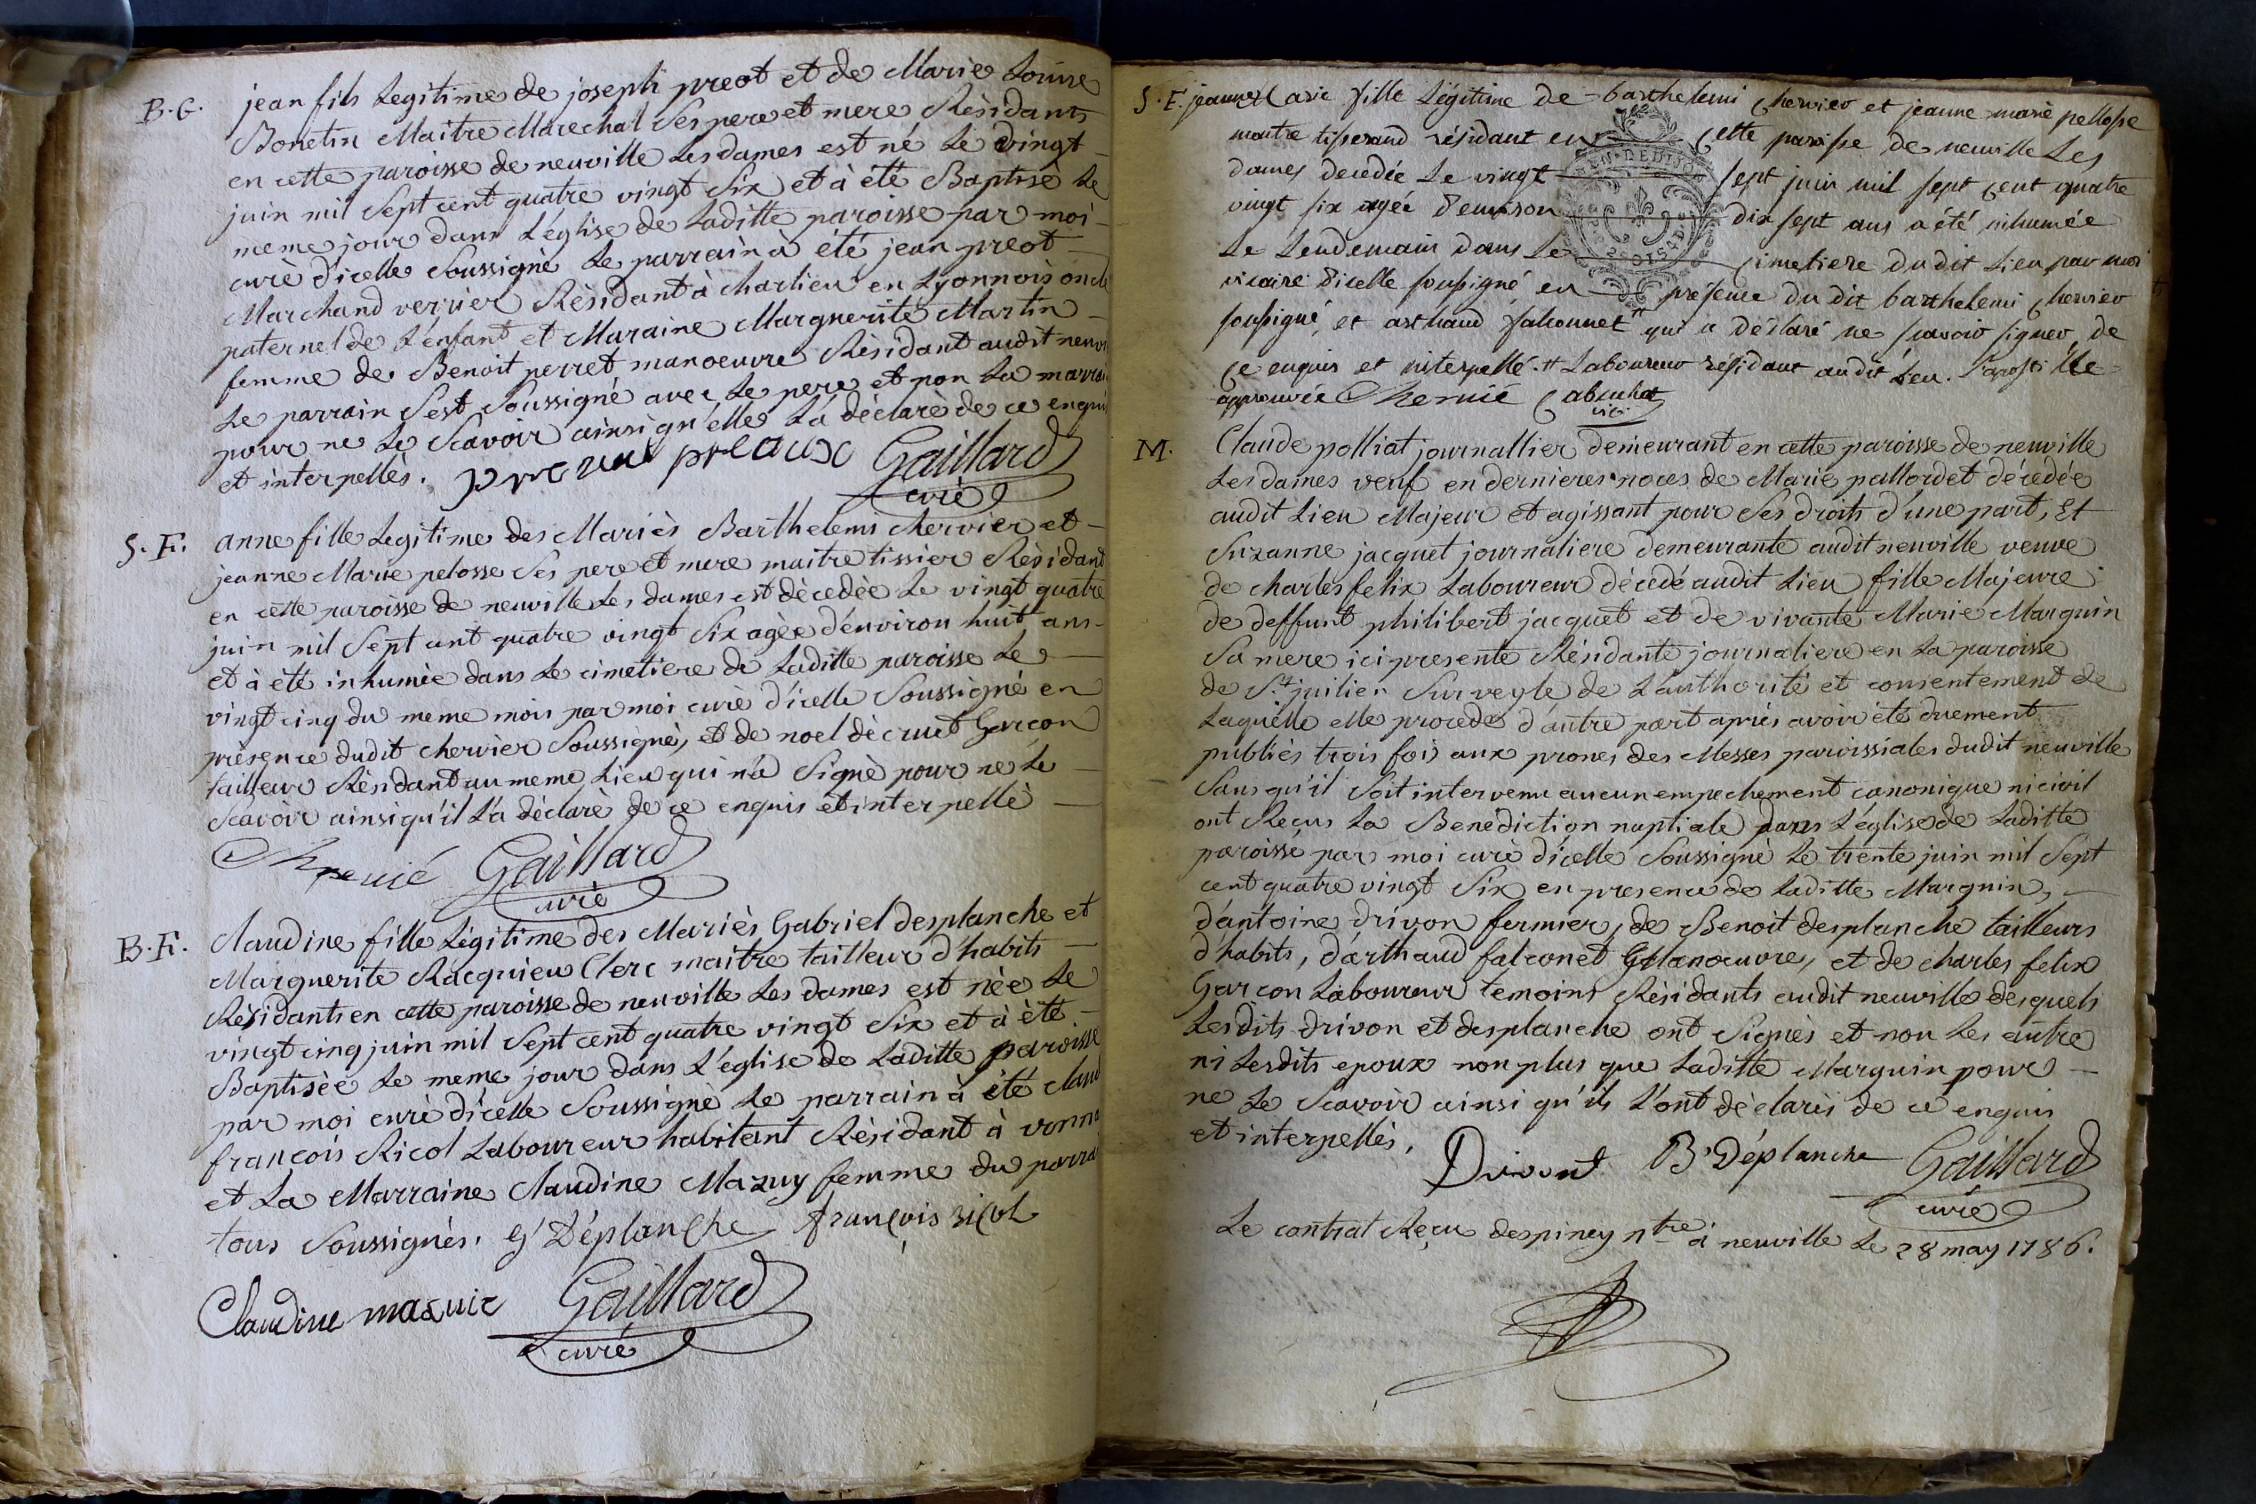 B.G. jean fils Legitime de joseph preot et de Marie Louise
Bonetin Maitre Marechal Ses pere et mere Rèsidants
en cette paroisse de neuville Les dames est né Le vingt
juin mil Sept cent quatre vingt Six et à été Baptisé Le
meme jour dans L'église de Laditte paroisse par moi
curé d'icelle Soussigné Le parrain à été jean preot
Marchand verrier Rèsidant à charlieu en Lyonnois oncle
paternel de L'enfant et Maraine Marguerite Martin
femme de Benoit perret manoeuvre Rèsidant audit neuvi
Le parrain S'est Soussigné avec Le pere et non La marrai
pour ne Le Scavoir ainsi qu'elle L'a déclaré de ce enqui
et interpellès. preaux Gaillard
curé
S.F. anne fille Legitime des Mariès Barthelemi chervier et
jeanne Marie pelosse Ses pere et mere maitre tissier Rèsidant
en cette paroisse de neuville Les dames est dècedèe Le vingt quatre
juin mil Sept cent quatre vingt Six agèe d'environ huit ans
et à été inhumèe dans Le cimetiere de Laditte paroisse Le
vingt cinq du meme mois par moi curè d'icelle Soussignè en
prèsence dudit chervier Soussignè, et de noel dècruit Garcon
tailleur Rèsidant au meme Lieu qui n'a Signè pour ne Le
Scavoir ainsi qu'il L'a déclarè de ce enquis et interpellè
Gaillard
curé
B.F. Claudine fille Légitime des Mariès Gabriel desplanche et
Marguerite Racquieu Clerc maitre tailleur d'habits
Rèsidants en cette paroisse de neuville Les dames est nèe Le
vingt cinq juin mil Sept cent quatre vingt Six et à étè
Baptisèe Le meme jour dans L'église de Laditte paroisse
par moi curè d'icelle Soussignè Le parrain à été claud
françois Ricol Laboureur habitant Rèsidant à vonna
et La Marraine Claudine Mazuy femme du parrai
tous Soussignès. G Déplanche françois ricol
Claudine mazuic Gaillard
curé
S.F. jeanne Marie fille Légitime de barthelemi chervier et jeanne marie pellosse
maitre tisserand résidant en cette paroisse de neuville Les
dames decedée Le vingt sept juin mil sept cent quatre
vingt six agée d'environ dix sept ans a été inhumée
Le Lendemain dans Le cimetiere du dit Lieu par moi
vicaire d'icelle soussigné en presence du dit barthelemi chervier
soussigné, et arthaud falconnet # qui a déclaré ne scavoir signer, de
ce enquis et interpellé. # Laboureur résidant audit Lieu. L'apostille
approuvée Cabuchet
vic.
M. Claude polliat journallier demeurant en cette paroisse de neuville
Les dames veuf en dernieres noces de Marie pallordet décedée
audit Lieu Majeur et agissant pour Ses droits d'une part, Et
Suzanne jacquet journaliere demeurante audit neuville veuve
de charles felix Laboureur décédé audit Lieu fille Majeure
de deffunt philibert jacquet et de vivante Marie Marguin
Sa mere ici presente Résidante journaliere en La paroisse
de St. juilien Sur veyle de L'authorité et consentement de
Laquelle elle procede d'autre part aprés avoir été duement
publiés trois fois aux prones des Messes paroissiales dudit neuville
Sans qu'il Soit intervenu aucun empechement canonique ni civil
ont Reçus La Benediction nuptiale dans L'église de Laditte
paroisse par moi curé d'icelle Soussigné Le trente juin mil Sept
cent quatre vingt Six en presence de Laditte Marguin,
d'antoine drivon fermier, de Benoit desplanche tailleurs
d'habits, d'arthaud falconet Manoeuvre, et de charles felix
Garcon Laboureur temoins Rèsidants audit neuville desquels
Lesdits drivon et desplanche ont Signès et non Les autre
ni Lesdits epoux non plus que Laditte Marguin pour
ne Le Scavoir ainsi qu'ils L'ont dèclarès de ce enquis
et interpellès.
Drivont B. Déplanche Gaillard
curé
Le contrat Reçu despiney ntre à neuville Le 28 may 1786.